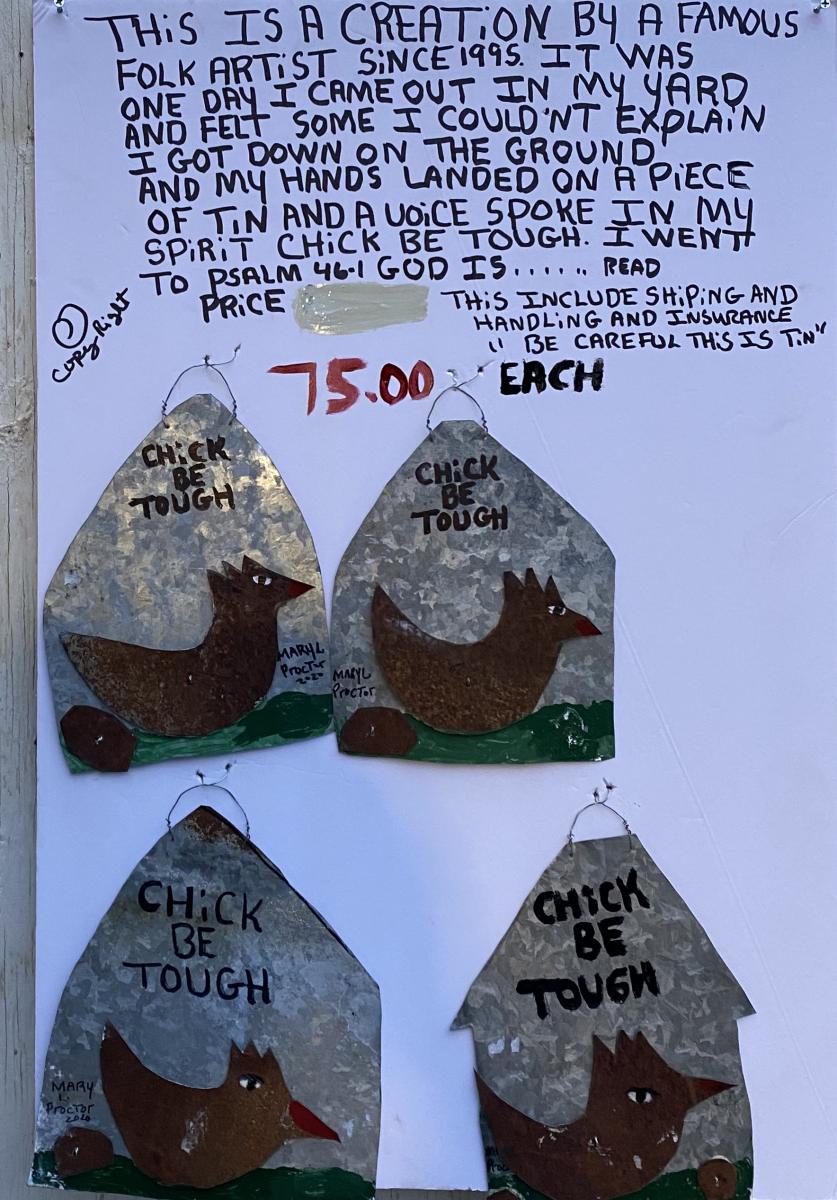 THiS IS A CREATION BY A FAMOUS
FOLK ARTIST SiNCE 1995. IT WAS
ONE DAY I CAME OUT IN MY YARD
AND FELT SOME I COULD'NT EXPLAiN
I GOT DOWN ON THE GROUND
AND MY HANDS LANDED ON A PiECE
OF TiN AND A VOiCE SPOKE IN MY
SPiRiT CHiCK BE TOUGH. I WENT
TO PSALM 46.1 GOD IS...... READ
© Copy Right
PRiCE
THiS INCLUDE SHiPiNG AND
HANDLiNG AND INSURANCE
" BE CAREFUL THiS IS TiN"
75.00 EACH
CHiCK
BE
TOUGH
MARY L
Proctor
2020
CHiCK
BE
TOUGH
MARY L
Proctor
CHiCK
BE
TOUGH
MARY
L.
Proctor
2020
CHiCK
BE
TOUGH